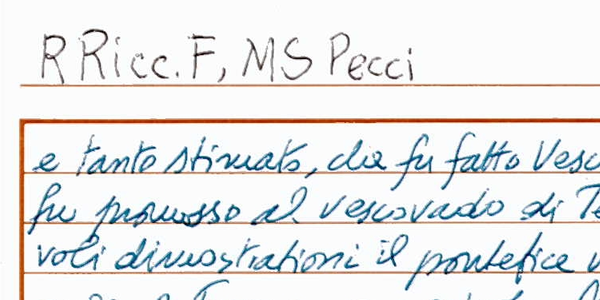 R Ricc. F, MS Pecci
e tanto stimato, che fu fatto Vesc
fu promosso al vescovado di Te
voli dimostrationi il pontefice